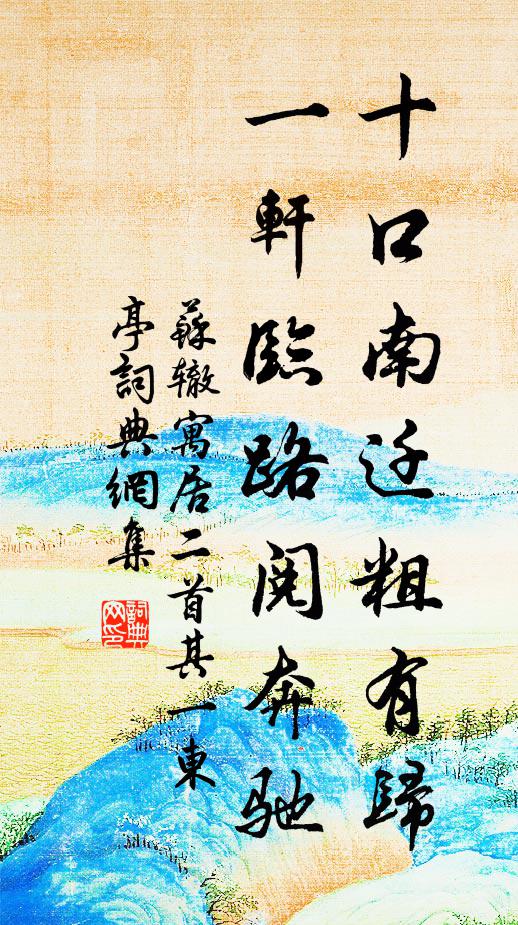 十口南迁粗有歸
一軒臨路閱奔馳
蘇辙寓居二首其一東
亭詞典網集
詞典網印